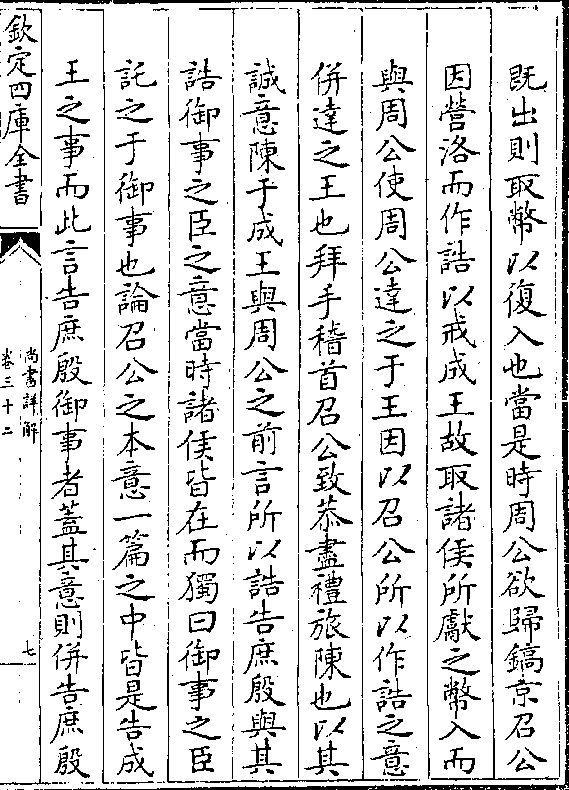 既出則取幣以復入也當是時周公欲歸鎬京召公
因營洛而作誥以戒成王故取諸侯所獻之幣入而
與周公使周公達之于王因以召公所以作誥之意
併達之王也拜手稽首召公致恭盡禮旅陳也以其
誠意陳于成王與周公之前言所以誥告庶殷與其
誥御事之臣之意當時諸侯皆在而獨曰御事之臣
託之于御事也論召公之本意一篇之中皆是告成
王之事而此言告庶殷御事者蓋其意則併告庶殷
欽定四庫全書
尚書詳解
卷三十二
七